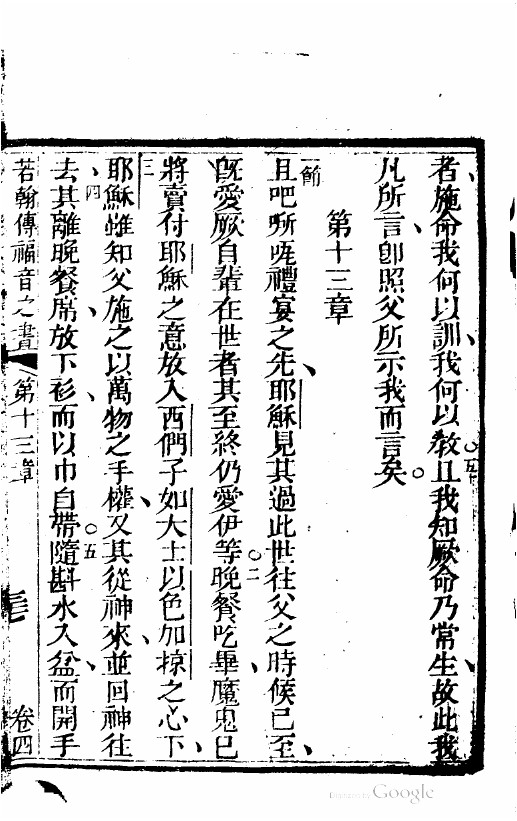 者施命我何以訓我何以教五且我知厥命乃常生故此我
凡所言卽照父所示我而言矣
第十三章
一節
且吧㗭咓禮宴之先耶穌見其過此世往父之時候已至
旣愛厥自輩在世者其至終仍愛伊等二晚餐吃畢魔鬼已
將賣付耶穌之意放入西們子如大士以色加掠之心下
三
耶穌雖知父施之以萬物之手權又其從神來並回神往
四
去其離晚餐席放下衫而以巾自帶五隨斟水入盆而開手
若翰傳福音之書
第十三章
卷四
Digitized by Google